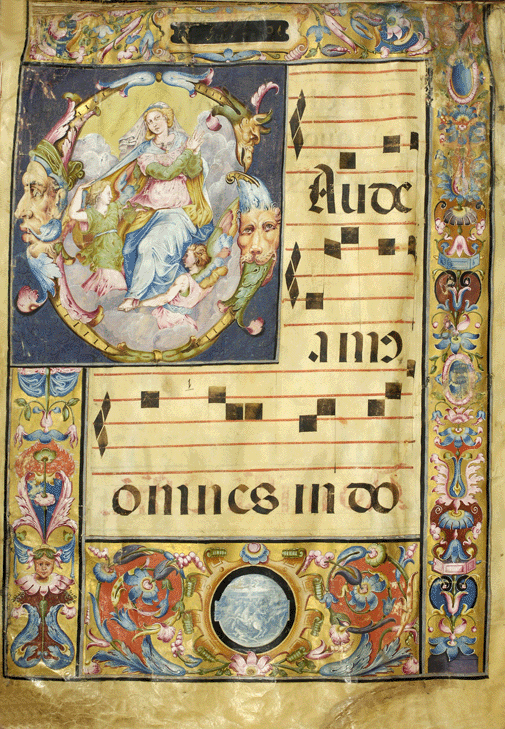 GAude
amꝰ
omnes in do